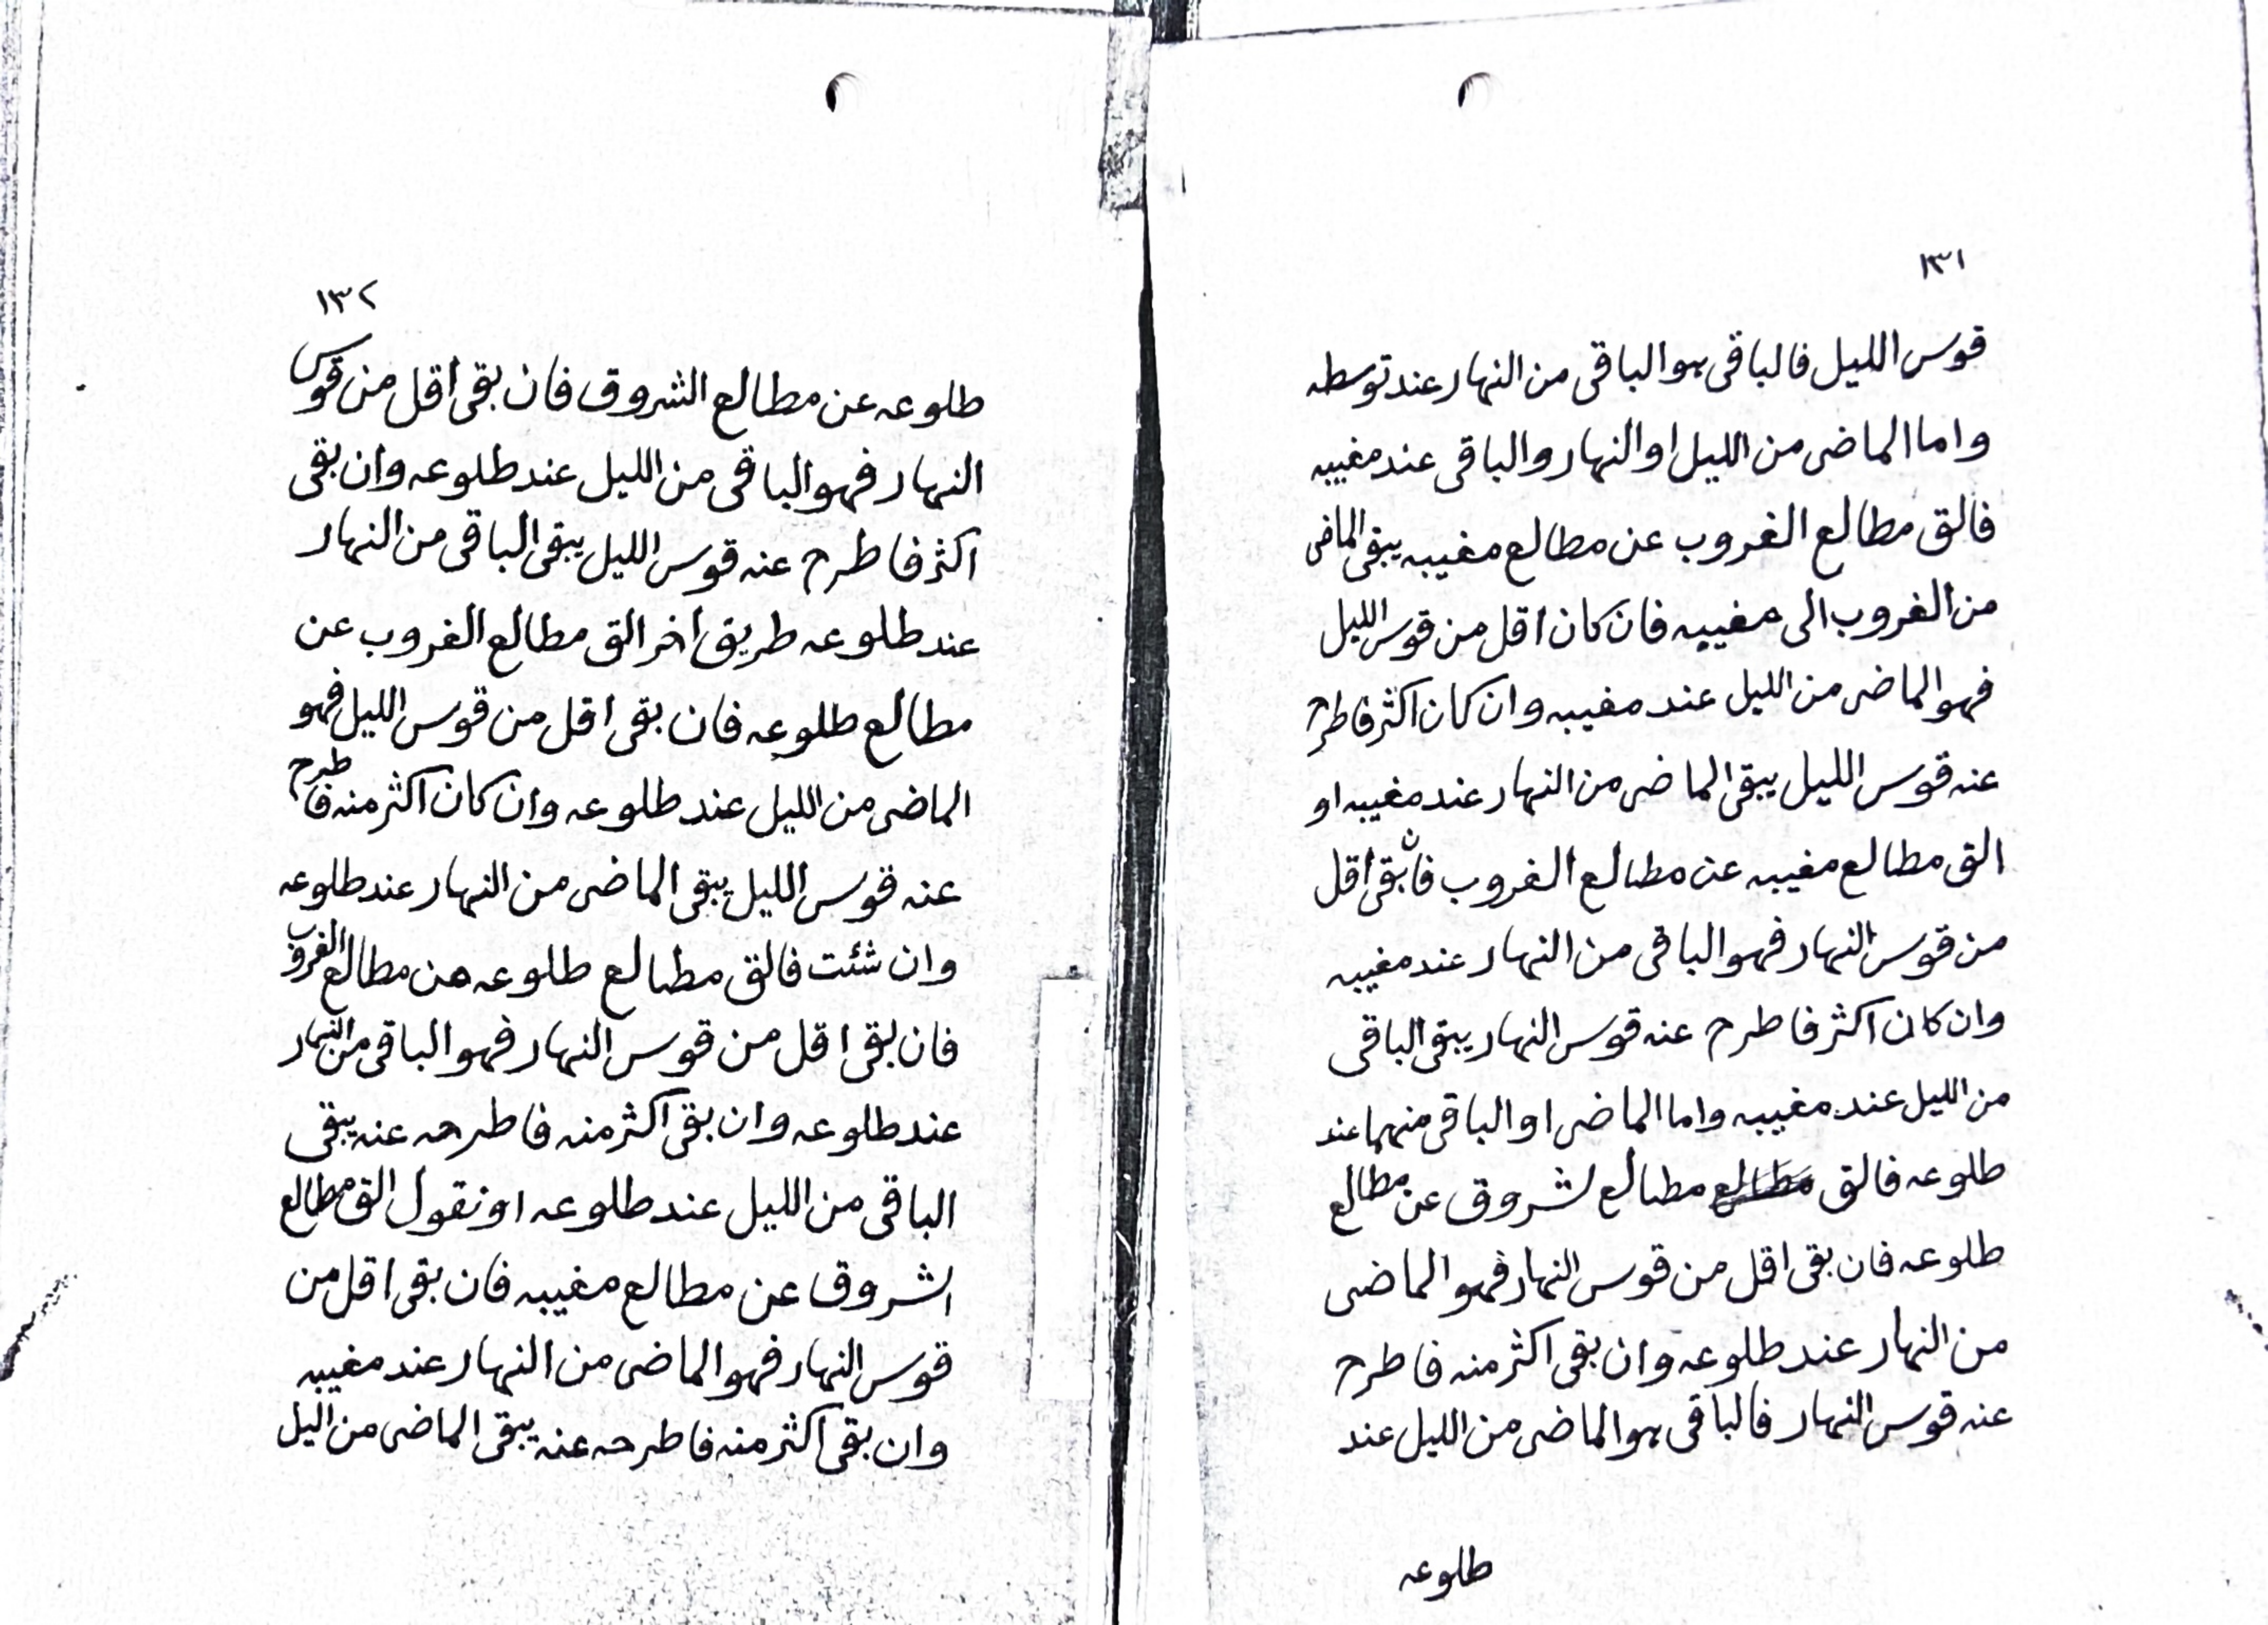 ١٣١
قوس الليل فالباقى هو الباقى من النهار عند توسطه
واما الماضى من الليل او النهار والباقى عند مغيبه
فالق مطالع الغروب عن مطالع مغيبه يبقى الماضى
من الغروب الى مغيبه فان كان اقل من قوس الليل
فهو الماضى من الليل عند مغيبه وان كان اكثر فاطرح
عنه قوس الليل يبقى الماضى من النهار عند مغيبه او
الق مطالع مغيبه عن مطالع الغروب فان بقى اقل
من قوس النهار فهو الباقى من النهار عند مغيبه
وان كان اكثر فاطرح عنه قوس النهار يبقى الباقى
من الليل عند مغيبه واما الماضى او الباقى منهما عند
طلوعه فالق مطالع مطالع لشروق عن مطالع
طلوعه فان بقى اقل من قوس النهار فهو الماضى
من النهار عند طلوعه وان بقى اكثر منه فاطرح
عنه قوس النهار فالباقى هو الماضى من الليل عند
طلوعه
١٣٢
طلوعه عن مطالع الشروق فان بقى اقل من قوس
النهار فهو الباقى من الليل عند طلوعه وان بقى
اكثر فاطرح عنه قوس الليل يبقى الباقى من النهار
عند طلوعه طريق اخر الق مطالع الغروب عن
مطالع طلوعه فان بقى اقل من قوس الليل فهو
الماضى من الليل عند طلوعه وان كان اكثر منه فاطرح
عنه قوس الليل يبقى الماضى من النهار عند طلوعه
وان شئت فالق مطالع طلوعه من مطالع الغروب
فان بقى اقل من قوس النهار فهو الباقى من النهار
عند طلوعه وان بقى اكثر منه فاطرحه عنه يبقى
الباقى من الليل عند طلوعه او نقول الق مطالع
الشروق عن مطالع مغيبه فان بقى اقل من
قوس النهار فهو الماضى من النهار عند مغيبه
وان بقى اكثر منه فاطرحه عنه يبقى الماضى من اليل